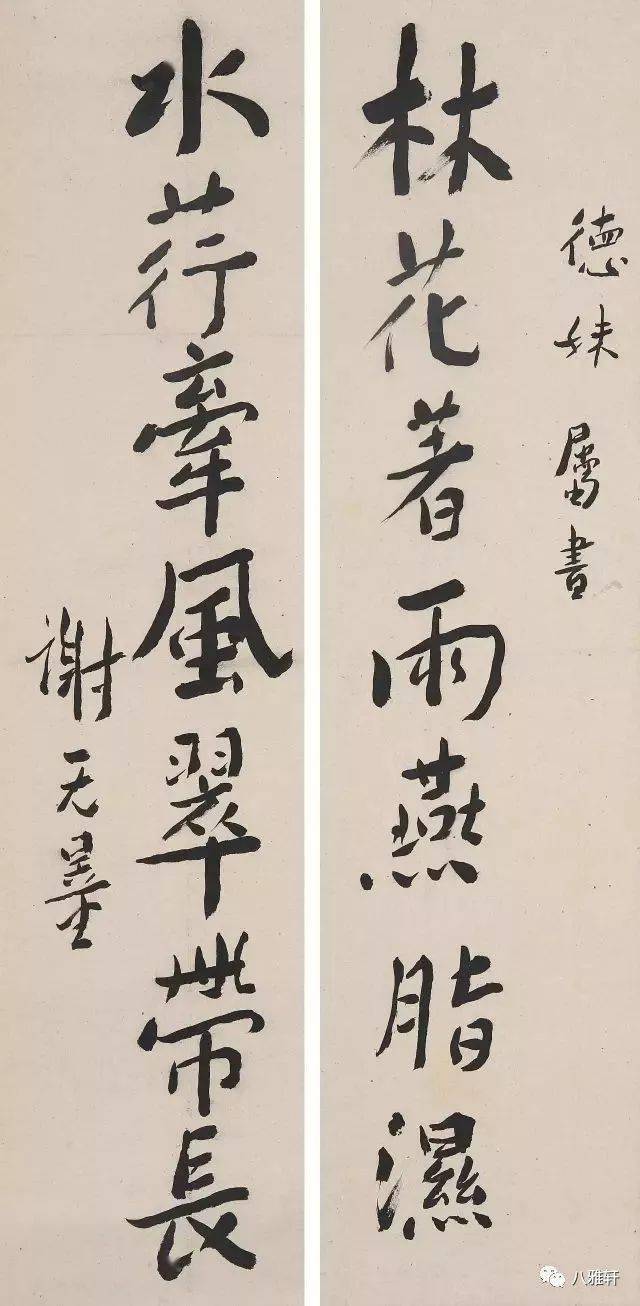 德妹屬書
林花著雨燕脂濕
水荇牽風翠帶長
谢无量
八雅轩